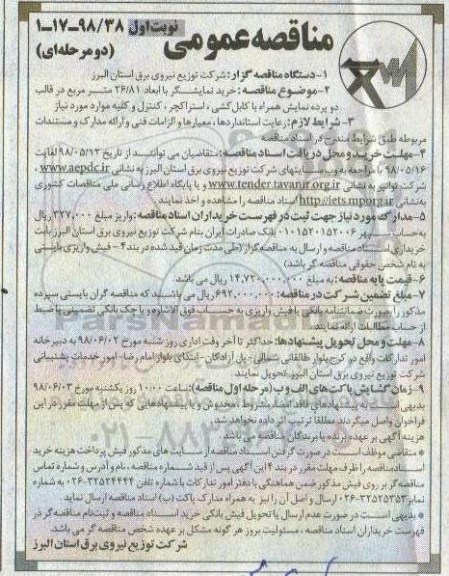 مناقصه عمومی
نوبت اول ۹۸/۳۸-۱۷-۱
(دو مرحله‌ای)
۱-دستگاه مناقصه گزار: شرکت توزیع نیروی برق استان البرز
۲-موضوع مناقصه: خرید نمایشگر با ابعاد ۲۶/۸۱ متر مربع در قالب
دو پرده نمایش همراه با کابل کشی، استراکچر، کنترل و کلیه موارد مورد نیاز
۳-شرایط لازم: رعایت استانداردها، معیارها و الزامات فنی و ارائه مدارک و مستندات
مربوطه طبق شرایط مندرج در اسناد مناقصه
۴-مهلت خرید و محل دریافت اسناد مناقصه: متقاضیان می توانند از تاریخ ۹۸/۰۵/۱۲ لغایت
۹۸/۰۵/۱۶ با مراجعه به وب سایتهای شرکت توزیع نیروی برق استان البرز به نشانی www.aepdc.ir،
شرکت توانیر به نشانی www.tender.tavanir.org.ir و یا پایگاه اطلاع رسانی ملی مناقصات کشوری
به نشانی http://iets.mporg.ir اسناد مناقصه را مشاهده و اخذ نمایند.
۵-مدارک مورد نیاز جهت ثبت در فهرست خریداران اسناد مناقصه: واریز مبلغ ۳۲۷,۰۰۰ ریال
به حساب سپهر ۰۱۰۱۵۲۰۱۵۲۰۰۶ بانک صادرات ایران بنام شرکت توزیع نیروی برق استان البرز بابت
خریداری اسناد مناقصه و ارسال به مناقصه گزار (طی مدت زمان قید شده در بند ۴ - فیش واریزی بایستی
به نام شخص حقوقی مناقصه گر باشد)
۶-قیمت پایه مناقصه: به مبلغ ۱۴,۷۲۰,۰۰۰,۰۰۰ ریال می باشد.
۷-مبلغ تضمین شرکت در مناقصه: ۶۹۲,۰۰۰,۰۰۰ ریال می باشد که مناقصه گران بایستی سپرده
مذکور را بصورت ضمانتنامه بانکی یا فیش واریزی به حساب فوق الاشاره و یا چک بانکی تضمینی یا ضبط
از حساب مطالبات ارائه نمایند.
۸-مهلت و محل تحویل پیشنهادها: حداکثر تا آخر وقت اداری روز شنبه مورخ ۹۸/۰۶/۰۲ به دبیرخانه
امور تدارکات واقع در کرج بلوار طالقانی شمالی- یان آزادگان- ابتدای بلوار امام رضا- امور خدمات پشتیبانی
شرکت توزیع نیروی برق استان البرز تحویل نمایند.
۹-زمان گشایش پاکت های الف و ب (مرحله اول مناقصه): ساعت ۱۰:۰۰ روز یکشنبه مورخ ۹۸/۰۶/۰۳
بدیهی است به پیشنهادهای فاقد امضا، مشروط، مخدوش و یا پیشنهادهایی که پس از مهلت مقرر در این
فراخوان واصل میگردند مطلقا ترتیب اثر داده نخواهد شد.
هزینه آگهی بر عهده برنده یا برندگان مناقصه می باشد.
* متقاضی موظف است در صورت گرفتن اسناد مناقصه از سایت های مذکور فیش پرداخت هزینه خرید
اسناد مناقصه را ظرف مهلت مقرر در بند ۴ این آگهی پس از قید شماره مناقصه، نام و آدرس و شماره تماس
مناقصه گر بر روی فیش مذکور ضمن هماهنگی با دفتر امور تدارکات با شماره تلفن ۳۲۵۲۴۴۴۴-۰۲۶ به شماره
نمابر ۳۲۵۲۵۳۵۳-۰۲۶ ارسال و اصل آن را نیز به همراه مدارک پاکت (ب) اسناد مناقصه ارسال نماید.
* بدیهی است در صورت عدم ارسال یا تحویل فیش بانکی خرید اسناد مناقصه و ثبت نام مناقصه گر در
فهرست خریداران اسناد مناقصه، مسئولیت بروز هر گونه مشکل بر عهده شخص مناقصه گر می باشد.
شرکت توزیع نیروی برق استان البرز